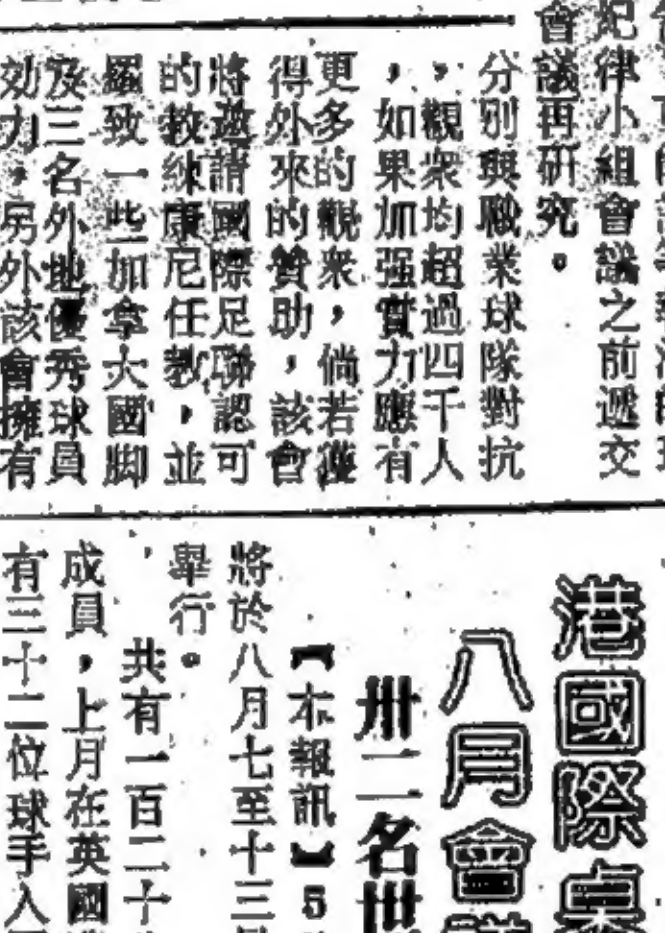 紀律小組會議之前遞交
會議再研究。
分別與職業球隊對抗
，觀衆均超過四千人
，如果加强實力應有
更多的觀衆，倘若獲
得外來的贊助，該會
將邀請國際足聯認可
的教練康尼任教，並
羅致一些加拿大國脚
及三名外地優秀球員
効力，另外該會擁有
港國際桌
八月會
卅二名世
【本報訊】5
將於八月七至十三
舉行。
共有一百二十
成員，上月在英國
有三十二位球手入